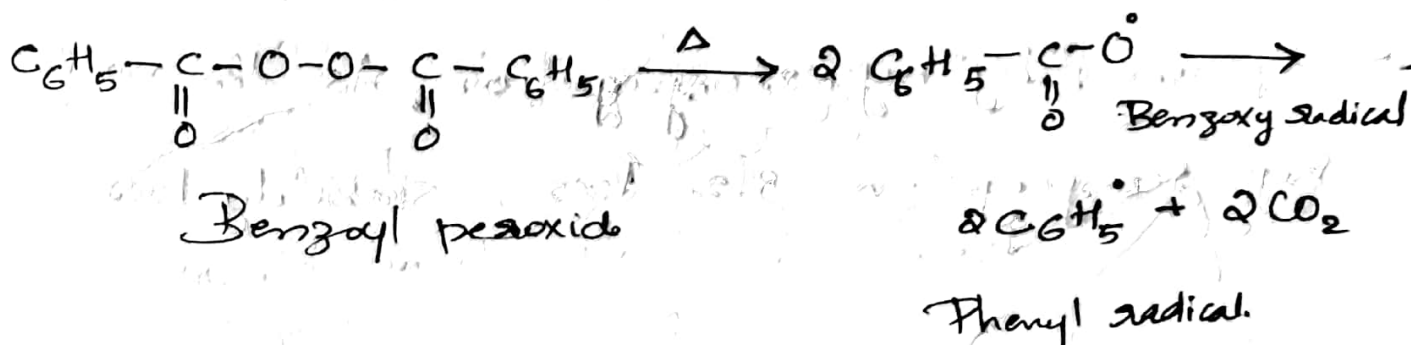 C₆H₅-C-O-O-C-C₆H₅ Δ→ 2 C₆H₅-C-O• →
|| || ||
O O O Benzoxy radical
Benzoyl peroxide 2C₆H₅• + 2CO₂
Phenyl radical.